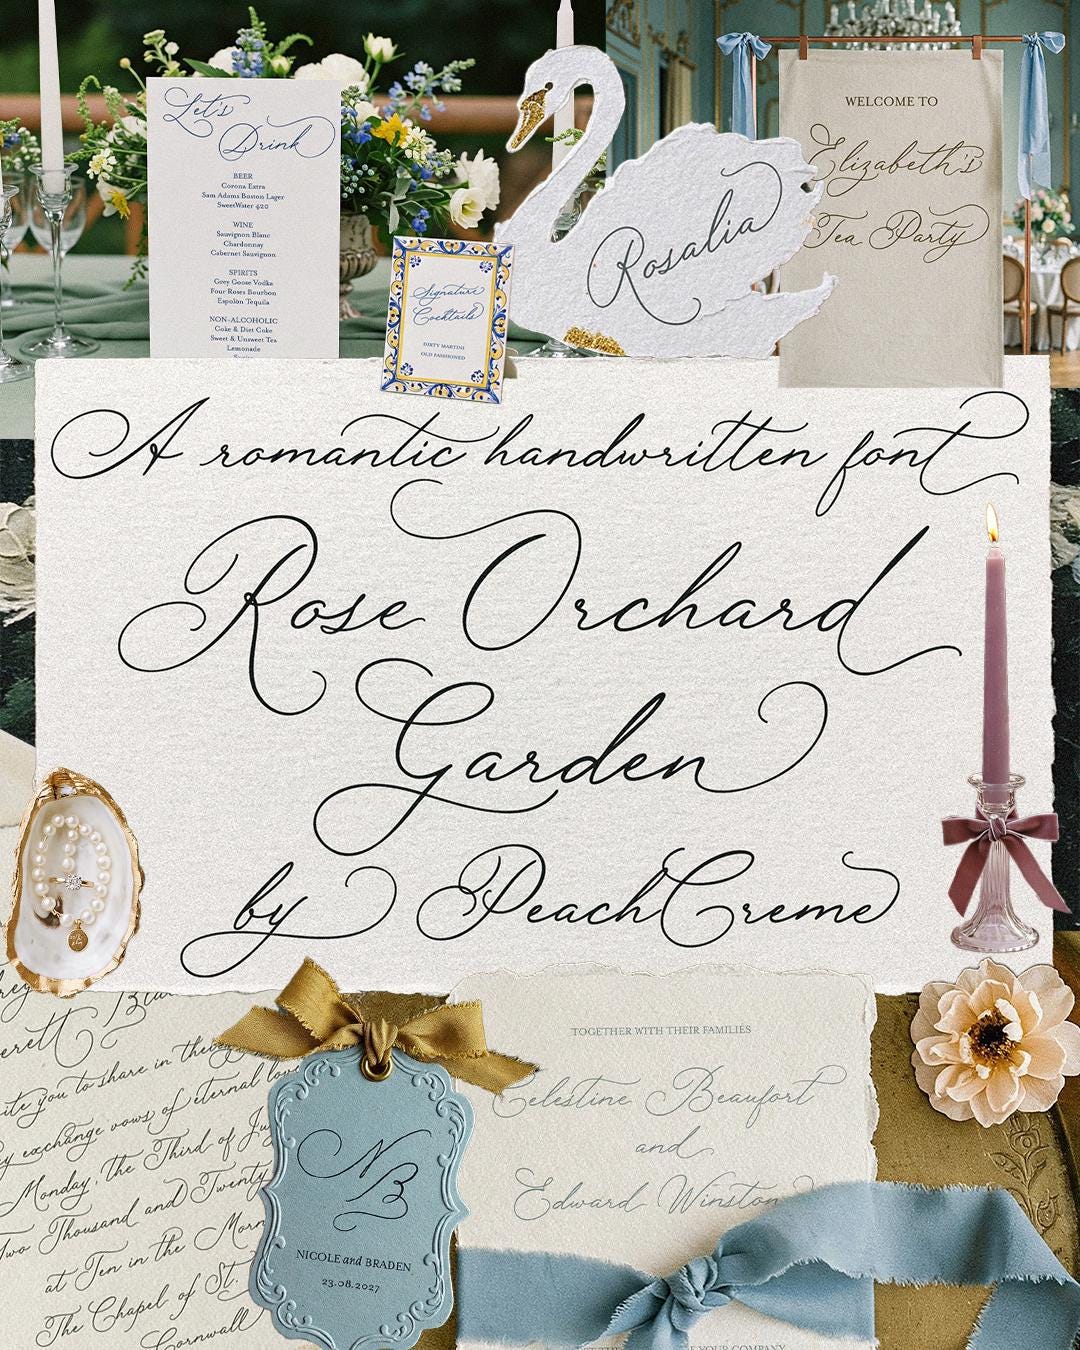 Let's
Drink
BEER
Corona Extra
Sam Adams Boston Lager
SweetWater 420
WINE
Sauvignon Blanc
Chardonnay
Cabernet Sauvignon
SPIRITS
Grey Goose Vodka
Four Roses Bourbon
Espolòn Tequila
NON-ALCOHOLIC
Coke & Diet Coke
Sweet & Unsweet Tea
Lemonade
Signature
Cocktails
DIRTY MARTINI
OLD FASHIONED
Rosalia
WELCOME TO
Elizabeth's
Tea Party
A romantic handwritten font
Rose Orchard
Garden
by PeachCreme
you to share in
exchange vows of eternal
Monday, the Third of
Two Thousand and Twenty
at Ten in the
The Chapel of St.
Cornwall
NB
NICOLE and BRADEN
23.08.2027
TOGETHER WITH THEIR FAMILIES
Celestine Beaufort
and
Edward Winston